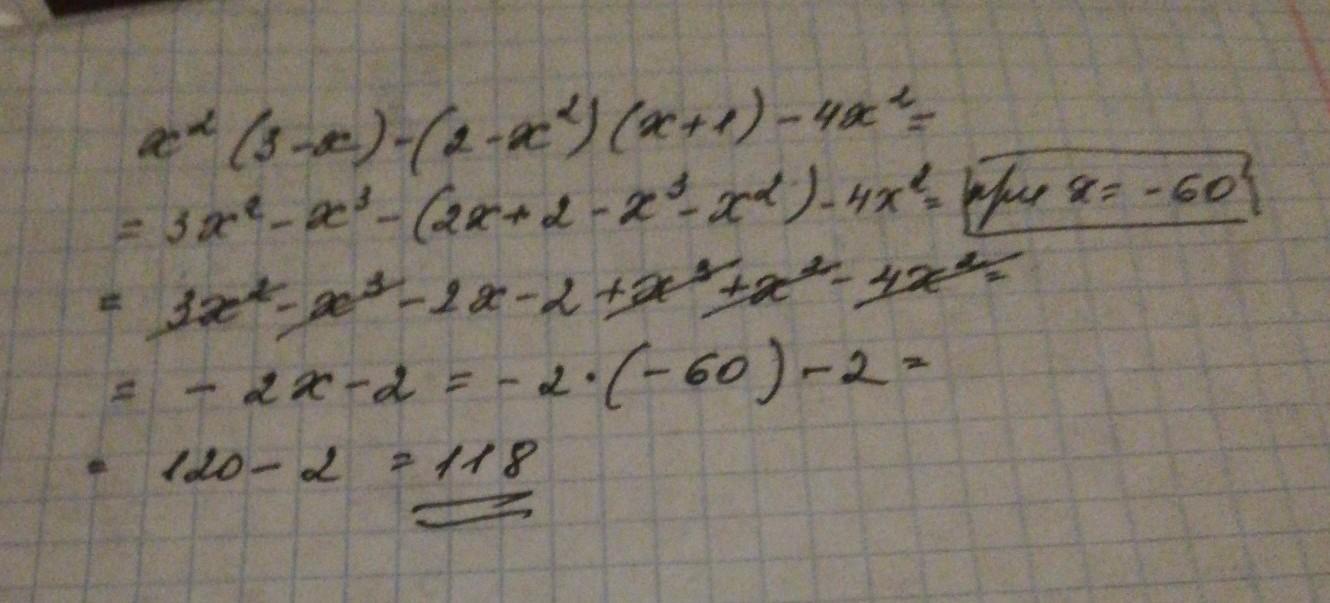 x² (3-x)-(2-x²) (x+1) - 4x² =
= 3x² - x³ - (2x+2-x³-x²) - 4x² = при x = -60
= 3x² - x³ - 2x - 2 + x³ + x² - 4x² =
= - 2x - 2 = - 2 · (-60) - 2 =
= 120 - 2 = 118